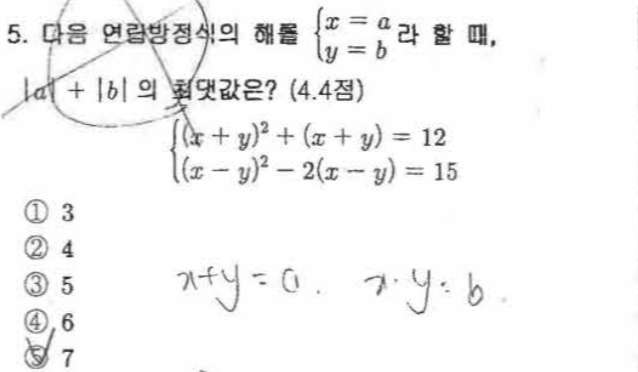 5. 다음 연립방정식의 해를 {x = a y = b 라 할 때,
|a| + |b| 의 최댓값은? (4.4점)
{(x + y)² + (x + y) = 12
(x - y)² - 2(x - y) = 15
① 3
② 4
③ 5
④ 6
⑤ 7
x+y = a. x·y = b.